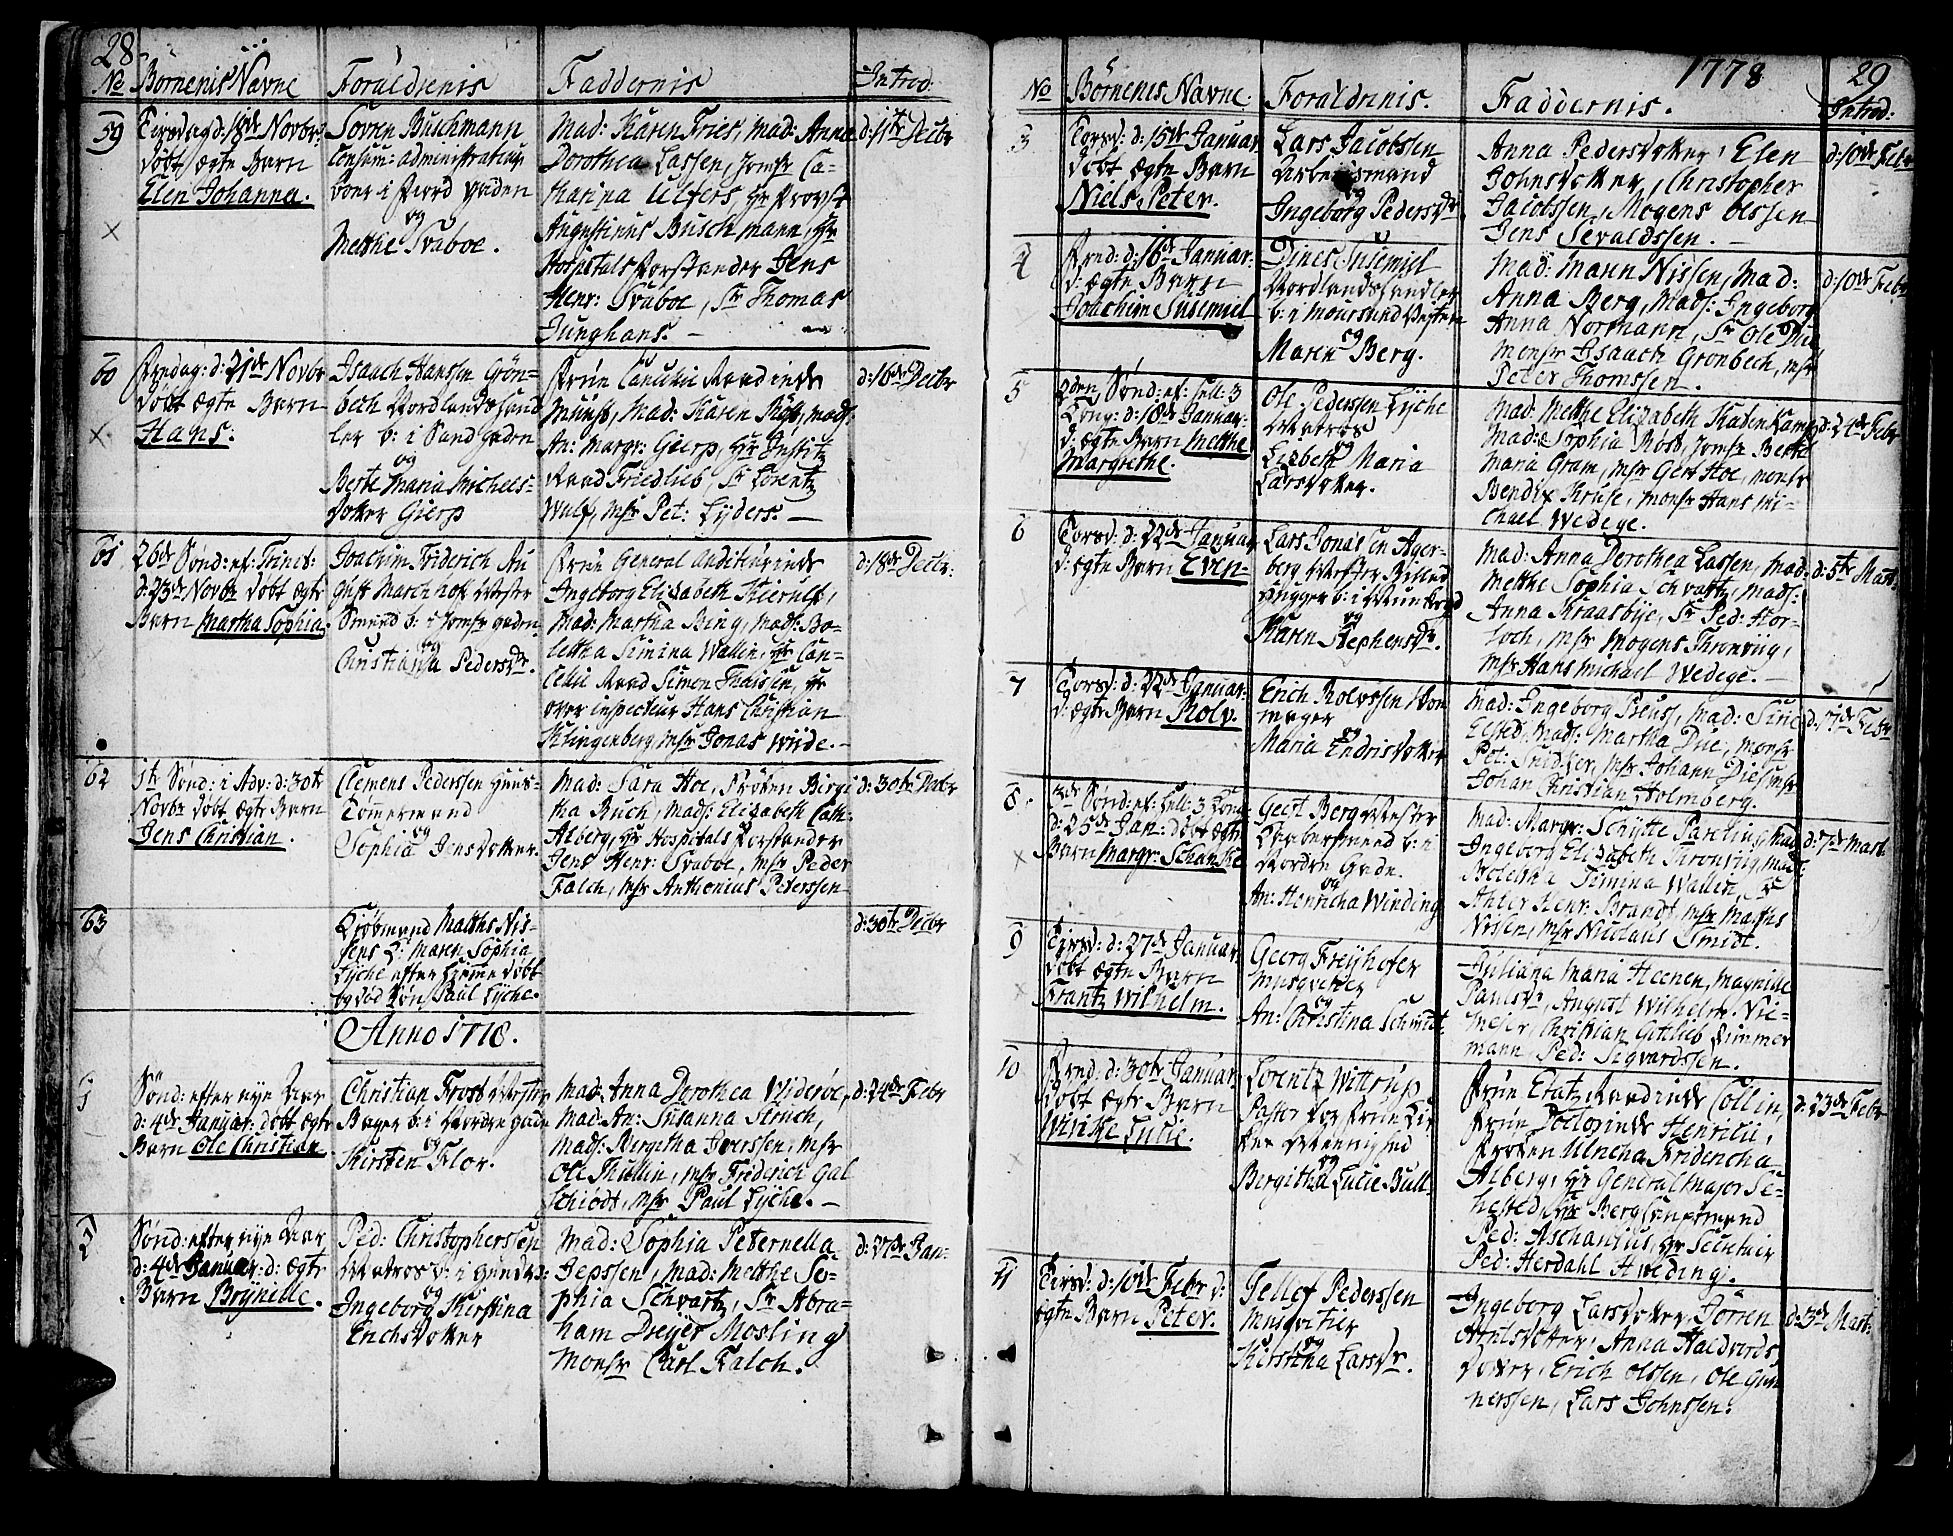 28
No Børnenis Navne Forældrenis Faddernis Introd:
59
Tirsdag d: 18de Novbr:
døbt ægte Barn
Elen Johanna.
Soren Buschmann
Consum: administrateur
boer i
og
Metthe Svaboe.
Mad: Karen Fries, Mad: Anna
Dorothea Lassen, Jomfr Ca-
tharina Ulfers, Hr Provst
Augustinus Buschmann, Hr
Hospitals Forstander Jens
Henr: Svaboe, Sr Thomas
Junghans.
d: 11te Decbr
60
Fredag: d: 21de Novbr
døbt ægte Barn
Hans.
Isaach Hanssen Grön-
bech Nordlandshand
ler b: i Sand gaden
og
Berte Maria Michels-
dotter Gierp
Frue Cancelie Raadinde
Münst, Mad: Karen Röst, Mads:
An: Margr: Gierp, Hr Justitz
Raad Friedlieb, Sr Lorentz
Wulf, Msr Pet: Lyders.
d: 16de Decbr
61
26de Sønd: ef: Trinit:
d: 23de Novbr døbt ægte
Barn Martha Sophia
Joachim Friderich Au
gust Marchhof
Svend b: i Jomfr gaden
og
Christiana Pedersdr.
Frue General Auditeurinde
Ingeborg Elisabeth Kierulf,
Mad: Martha Bing, Mads: Bo-
lettha Simina Wallin, Hr Can-
cellie Raad Simon Thaisen, Hr
over inspecteur Hans Christian
Klingenberg, Msr Jonas Wiide.
d: 18de Decbr:
62
1te Sønd: i Adv: d: 30te
Novbr døbt ægte Barn
Jens Christian.
Clemens Pederssen Huus
Tømmermand
og
Sophia Jensdotter.
Mad: Sara Hoe, Frøken Birgi
tha Buch, Mads: Elizabeth Cath:
Alberg, Hr Hospitals Forstander
Jens Henr: Svaboe, Msr Peder
Falch, Msr Anthonius Pederssen
d: 30te Decbr
63
Kjøbmand Matths Nis-
sens H: Maren Sophia
Lyche efter hiemme døbt
og død Søn Paul Lyche.
d: 30te Decbr
Anno 1778.
1
Sønd: efter nye Aar
d: 4de Januar: døbt ægte
Barn Ole Christian
Christian Frost Mester
Bager b: i Nordre gade
og
Kirsten Flor.
Mad: Anna Dorothea Widerøe,
Mad: An: Susanna Struch,
Mads: Bergitha Iverssen, Msr
Ole Thullin, Msr Friderich Gal
Schiødt, Msr Paul Lyche.
d: 24de Febr
2
Sønd: efter nye Aar
d: 4de Januar: d: ægte
Barn Brynelle.
Ped: Christopherssen
Matros
og
Ingeborg Kirstina
Erichsdotter
Mad: Sophia Peternella
Jepssen, Mad: Metthe So-
phia Schvartz, Sr Abra-
ham Dreyer Mosling
Monsr Carl Falch.
d: 27de Jan:
1778 29
No Børnenis Navne. Forældrenis. Faddernis. Introd:
3
Torsd: d: 15de Januar
døbt ægte Barn
Niels Peter.
Lars Jacobssen
Arbeidsmand
og
Ingeborg Pedersdr
Anna Pedersdotter, Elen
Johnsdotter, Christopher
Jacobssen, Mogens Olssen
Jens Sevaldssen.
d: 10de Febr
4
Fred: d: 16de Januar:
d: ægte Barn
Joachim Susemiel
Dines Susemiel
Nordlandshandler
og
Maren Berg.
Mad: Maren Nissen, Mad:
Anna Berg, Mads: Ingeborg
Anna Normann, Sr Ole Due
Monsr Isaach Gronbech, Msr
Peter Thomssen.
d: 10de Febr
5
2den Sønd: ef: Hell: 3
Kong: d: 18de Januar:
d: ægte Barn Metthe
Margrethe.
Ole Pederssen Lyche
Matros
og
Lisbeth Maria
Larsdotter.
Mad: Metthe Elizabeth Katenkamp
Mad: Sophia Ross, Jomfr Berte
Maria Gram, Msr Gert Hoe, Monsr
Bendix Kruse, Monsr Hans Mi-
chael Wedege.
d: 24de Febr
6
Torsd: d: 22de Januar
d: ægte Barn Even.
Lars Jonassen Ager-
berg Mester Billed
hugger b: i
og
Karen Stephensdr.
Mad: Anna Dorothea Lassen, Mad:
Metthe Sophia Schvartz, Mads:
Anna Kraasbye, Sr Ped: Hor-
loch, Msr Mogens Thronrüg,
Msr Hans Michael Wedege.
d: 5te Mart:
7
Torsd: d: 22de Januar:
d: ægte Barn Rolv.
Erich Rolvssen Vog
mager
og
Maria Endrisdotter
Mad: Ingeborg Preus, Mad: Sine
Elsted, Mads: Martha Die, Monsr
Pet: Snidker, Msr Johann Die, Msr
Johan Christian Holmberg.
d: 17de Febr
8.
3de Sønd: ef: Hell: 3 Kong:
d: 25de Jan: døbt ægte
Barn Margr: Schanke
Geert Berg Mester
Farbersvend b: i
Nordre Gade.
og
An: Henricha Winding
Mad: Margr: Schytte Parelius, Mad:
Ingeborg Elisabeth Thronrüg, Mads:
Bolettha Simina Wallin, Sr
Ahler Henr: Brandt, Msr Matths
Nissen, Msr Nicolaus Smidt.
d: 7de Mart:
9
Tirsd: d: 27de Januar
døbt ægte Barn
Frantz Wilhelm.
Georg Freyhofer
Musqveteer
og
An: Christina Schmidt
Juliana Maria Heenen, Magnille
Paulsdr, August Wilhelm Nie-
meier, Christian Gottlieb Zimmer
mann, Ped: Sigvardssen.
10
Fred: d: 30te Januar
døbt ægte Barn
Wiviche Lucie.
Lorentz Wittrup
Pastor for Frue Kir
kes Meenighed
og
Bergitha Lucie Bull.
Frue Etatz Raadinde Collin,
Frue Henrice,
Frøken Ulricha Fridericha
Alberg, Hr General Major Se-
hested, Hr Berghauptmand
Ped: Aschanius, Hr Secretair
Ped: Herdahl Hveding.
d: 23de Febr
11
Tirsd: d: 10de Febr d:
ægte Barn Peter.
Tellef Pederssen
Musqvetier
og
Kirstina Larsdr.
Ingeborg Larsdotter, Jören
Arntsdotter, Anna Haldvords
dotter, Erich Olssen, Ole Gun
nerssen, Lars Johnssen.
d: 3de Mart: